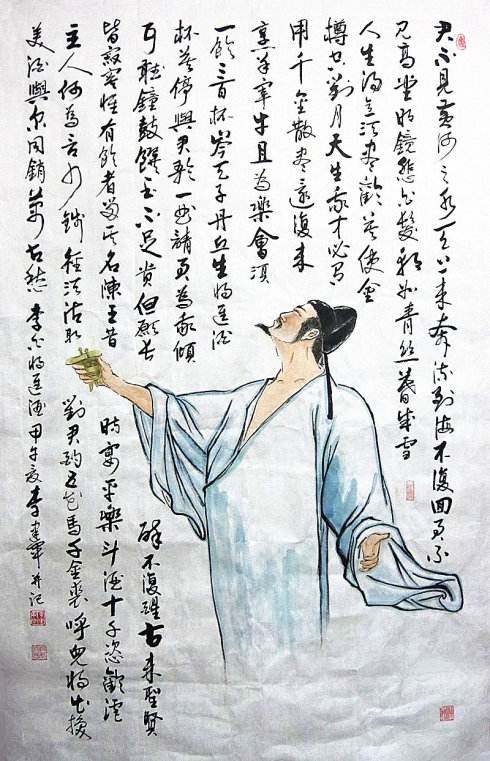 君不見黃河之水天上來奔流到海不復回君不
見高堂明鏡悲白髮朝如青絲暮成雪
人生得意須盡歡莫使金
樽空對月天生我才必有
用千金散盡還復來
烹羊宰牛且為樂會須
一飲三百杯岑夫子丹丘生將進酒
杯莫停與君歌一曲請君為我傾
耳聽鐘鼓饌玉不足貴但願長
醉不復醒古來聖賢
皆寂寞惟有飲者留其名陳王昔
時宴平樂斗酒十千恣歡謔
主人何為言少錢徑須沽取
對君酌五花馬千金裘呼兒將出換
美酒與爾同銷萬古愁 李白將進酒 甲午夏 李建軍并記